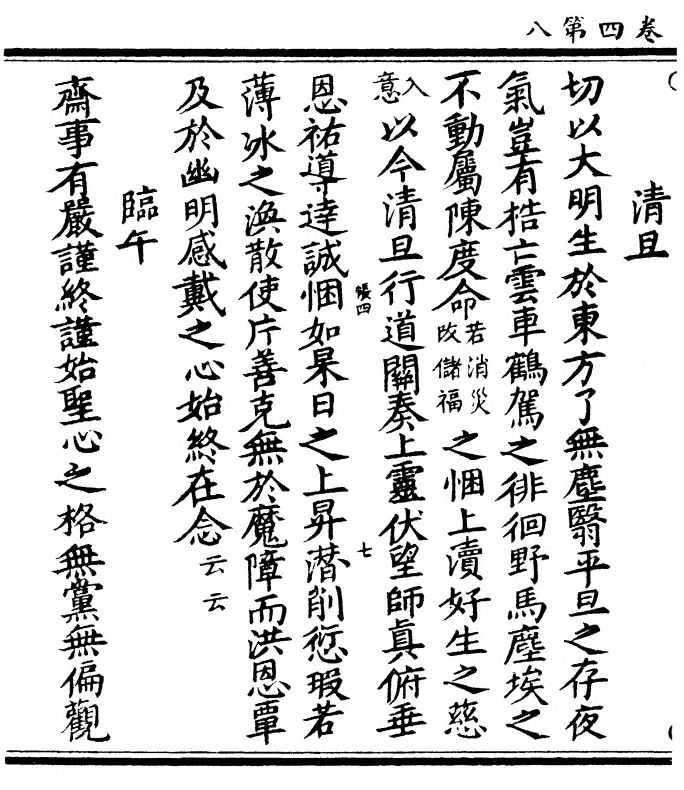 卷四第八
清旦
切以大明生於東方了無塵翳平旦之存夜
氣豈有梏亡雲車鶴駕之徘徊野馬塵埃之
不動屬陳度命若消災改儲福之悃上瀆好生之慈
入意以今清旦行道關奏上靈伏望師眞俯垂
帳四
七
恩祐導達誠悃如杲日之上昇潜削愆瑕若
薄冰之渙散使片善克無於魔障而洪恩覃
及於幽明感戴之心始終在念云云
臨午
齋事有嚴謹終謹始聖心之格無黨無偏觀